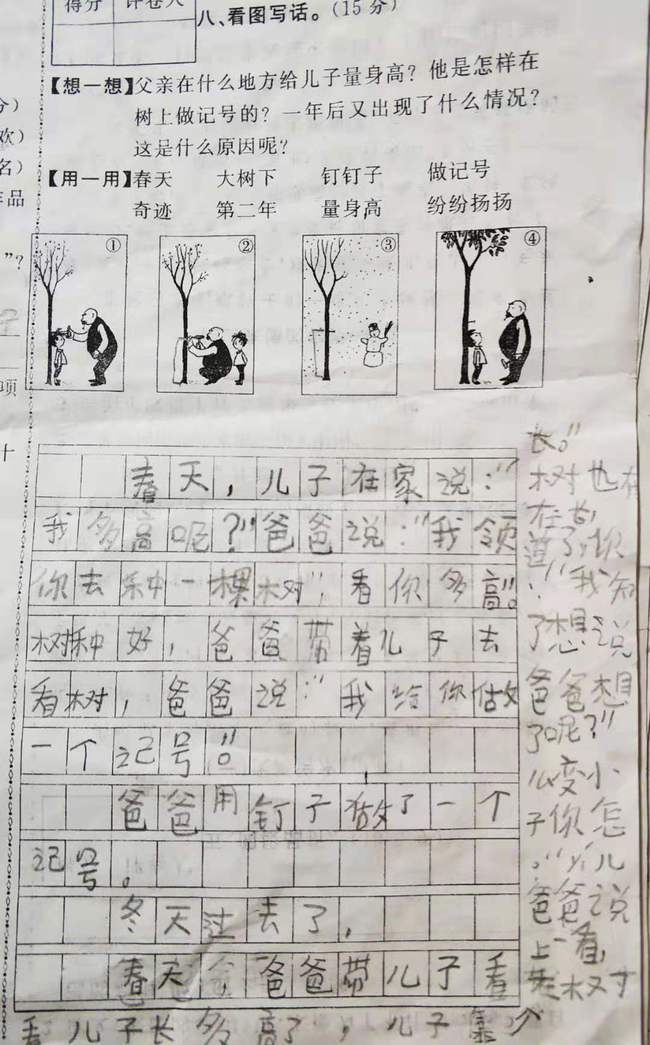 得分 评卷人
八、看图写话。（15分）
【想一想】父亲在什么地方给儿子量身高？他是怎样在
树上做记号的？一年后又出现了什么情况？
这是什么原因呢？
【用一用】春天 大树下 钉钉子 做记号
奇迹 第二年 量身高 纷纷扬扬
① ② ③ ④
春天，儿子在家说：“
我多高呢？”爸爸说：“我领
你去种一棵树，看你多高”。
树种好，爸爸带着儿子去
看树，爸爸说：“我给你做
一个记号”。
爸爸用钉子做了一个
记号。
冬天过去了，
春天，爸爸带儿子看
看儿子长多高了，儿子靠
树
上一看，
爸爸说
：“儿
子你怎
么变小
了呢？”
爸爸想
了想说
：“我知
道了，你
在长，
树也在
长。”
分）
欢）
名）
作品
”？
项
十